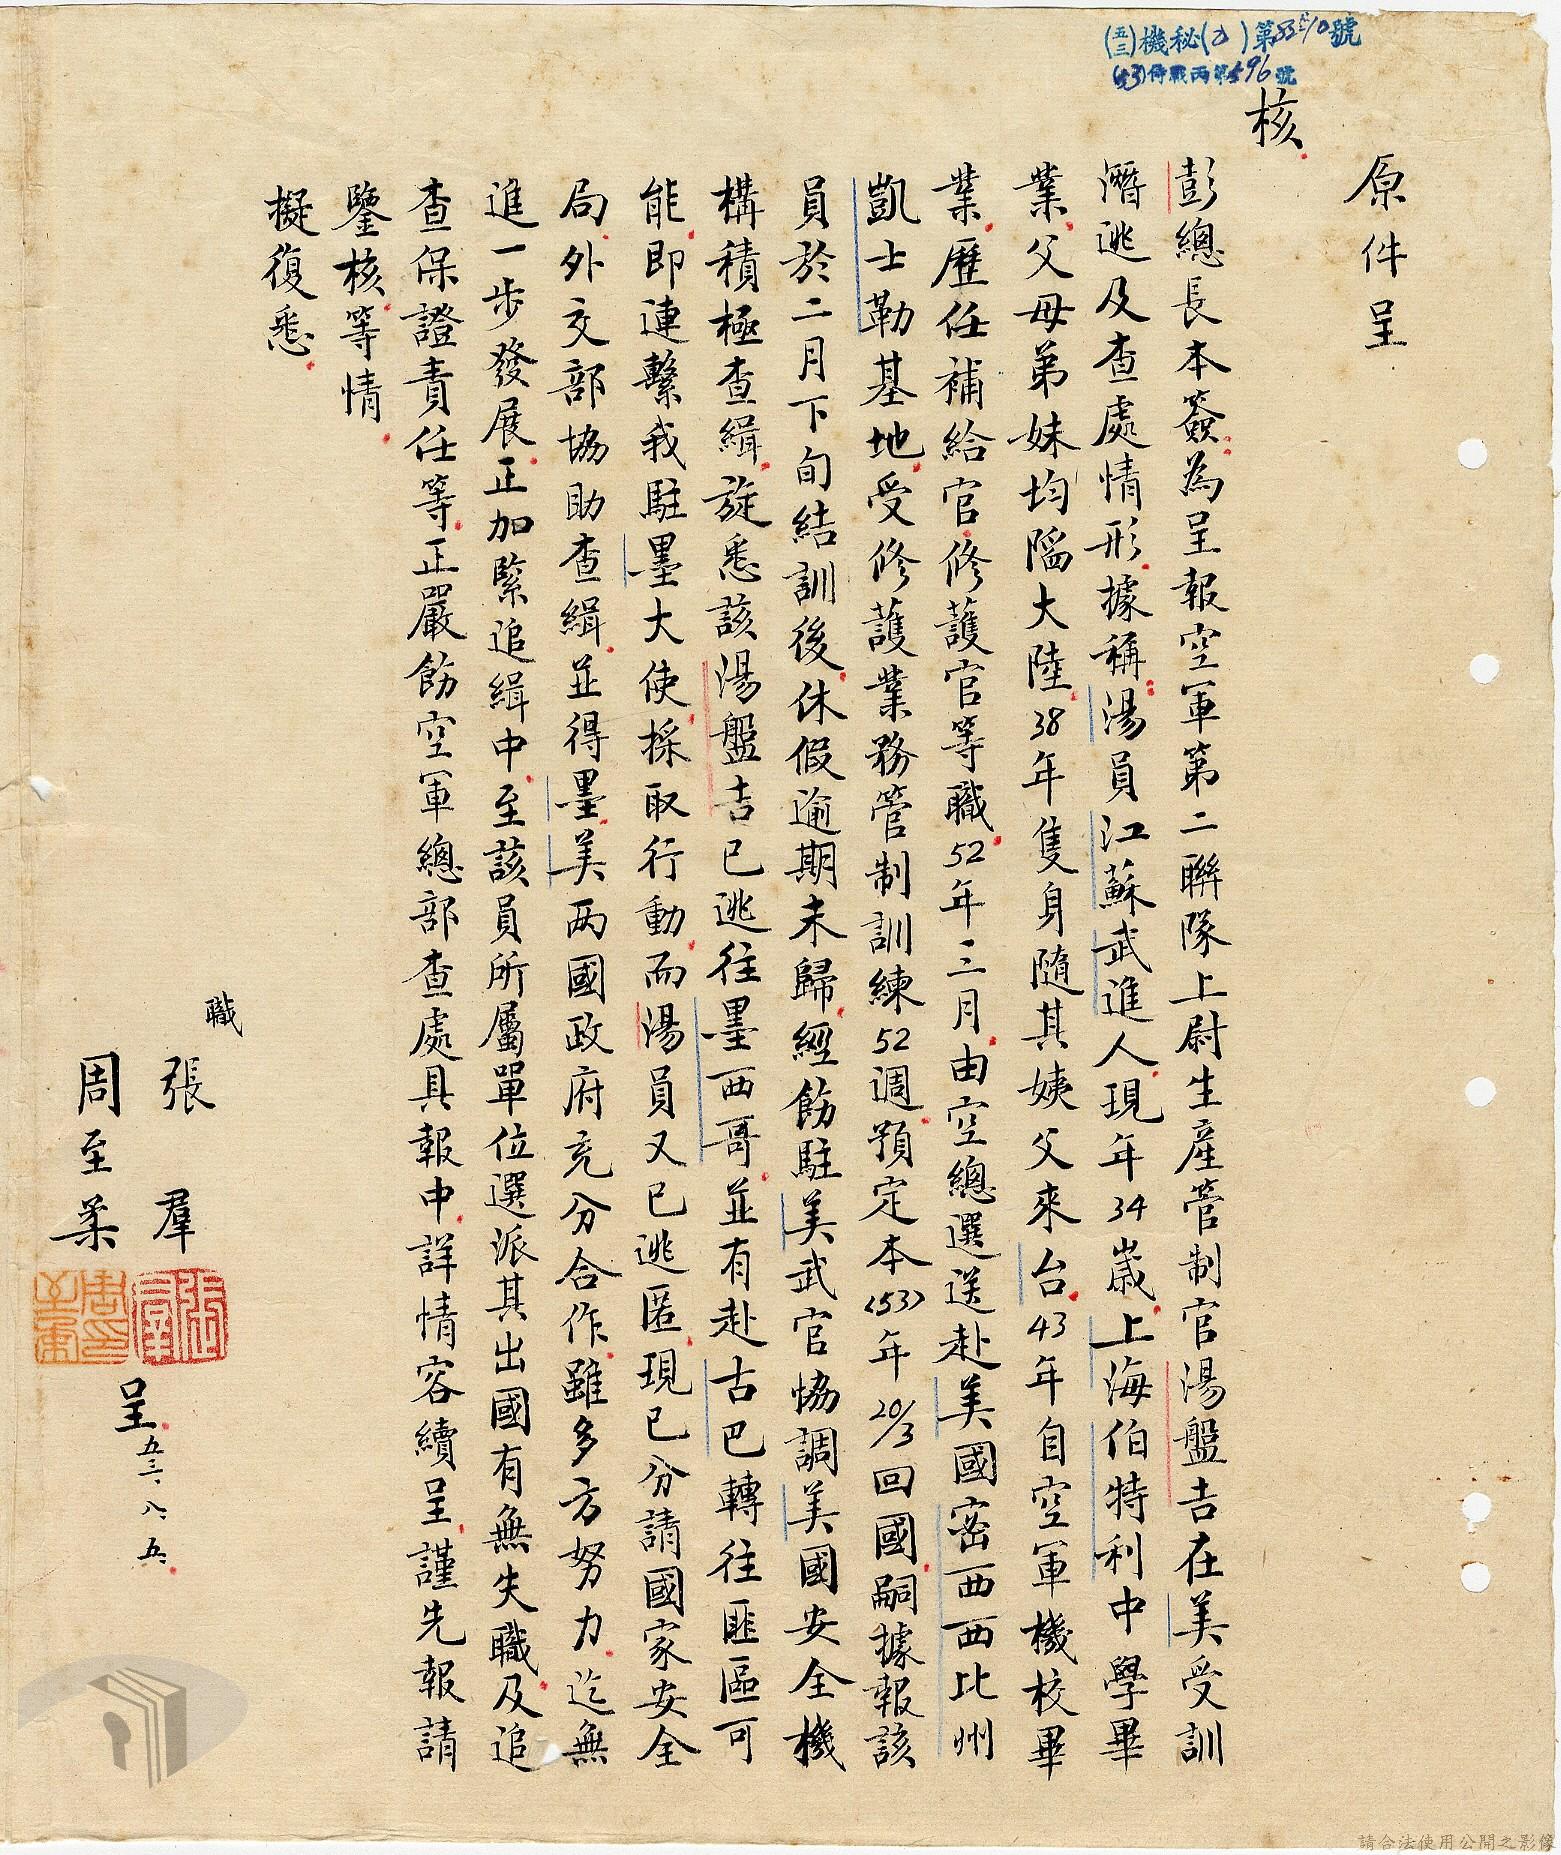 (五三)機秘(乙)第 號
(53)侍戰丙第596號
原件呈
核
彭總長本簽為呈報空軍第二聯隊上尉生產管制官湯盤吉在美受訓
潛逃及查處情形據稱湯員江蘇武進人現年34歲上海伯特利中學畢
業父母弟妹均陷大陸38年隻身隨其姨父來台43年自空軍機校畢
業歷任補給官修護官等職52年三月由空總選送赴美國密西西比州
凱士勒基地受修護業務管制訓練52週預定本(53)年20/3回國嗣據報該
員於二月下旬結訓後休假逾期未歸經飭駐美武官協調美國安全機
構積極查緝旋悉該湯盤吉已逃往墨西哥並有赴古巴轉往匪區可
能即連繫我駐墨大使採取行動而湯員又已逃匿現已分請國家安全
局外交部協助查緝並得墨美两國政府充分合作雖多方努力迄無
進一步發展正加緊追緝中至該員所屬單位選派其出國有無失職及追
查保證責任等正嚴飭空軍總部查處具報中詳情容續呈謹先報請
鑒核等情
擬復悉
職
張羣
周至柔
呈五三、八、五、
請合法使用公開之影像